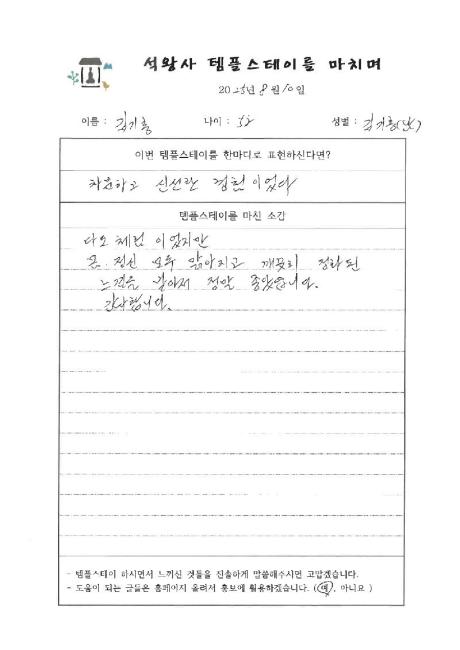 석왕사 템플스테이를 마치며
2025년 8월 10일
이름 : 김기홍 나이 : 52 성별 : 김기홍(남)
이번 템플스테이를 한마디로 표현하신다면?
차분하고 신선한 경험이었다
템플스테이를 마친 소감
다도 체험 이었지만
몸.정신 모두 맑아지고 깨끗히 정화된
느낌을 받아서 정말 좋았습니다.
감사합니다.
- 템플스테이 하시면서 느끼신 것들을 진솔하게 말씀해주시면 고맙겠습니다.
- 도움이 되는 글들은 홈페이지 올려서 홍보에 활용하겠습니다. (예, 아니요 )